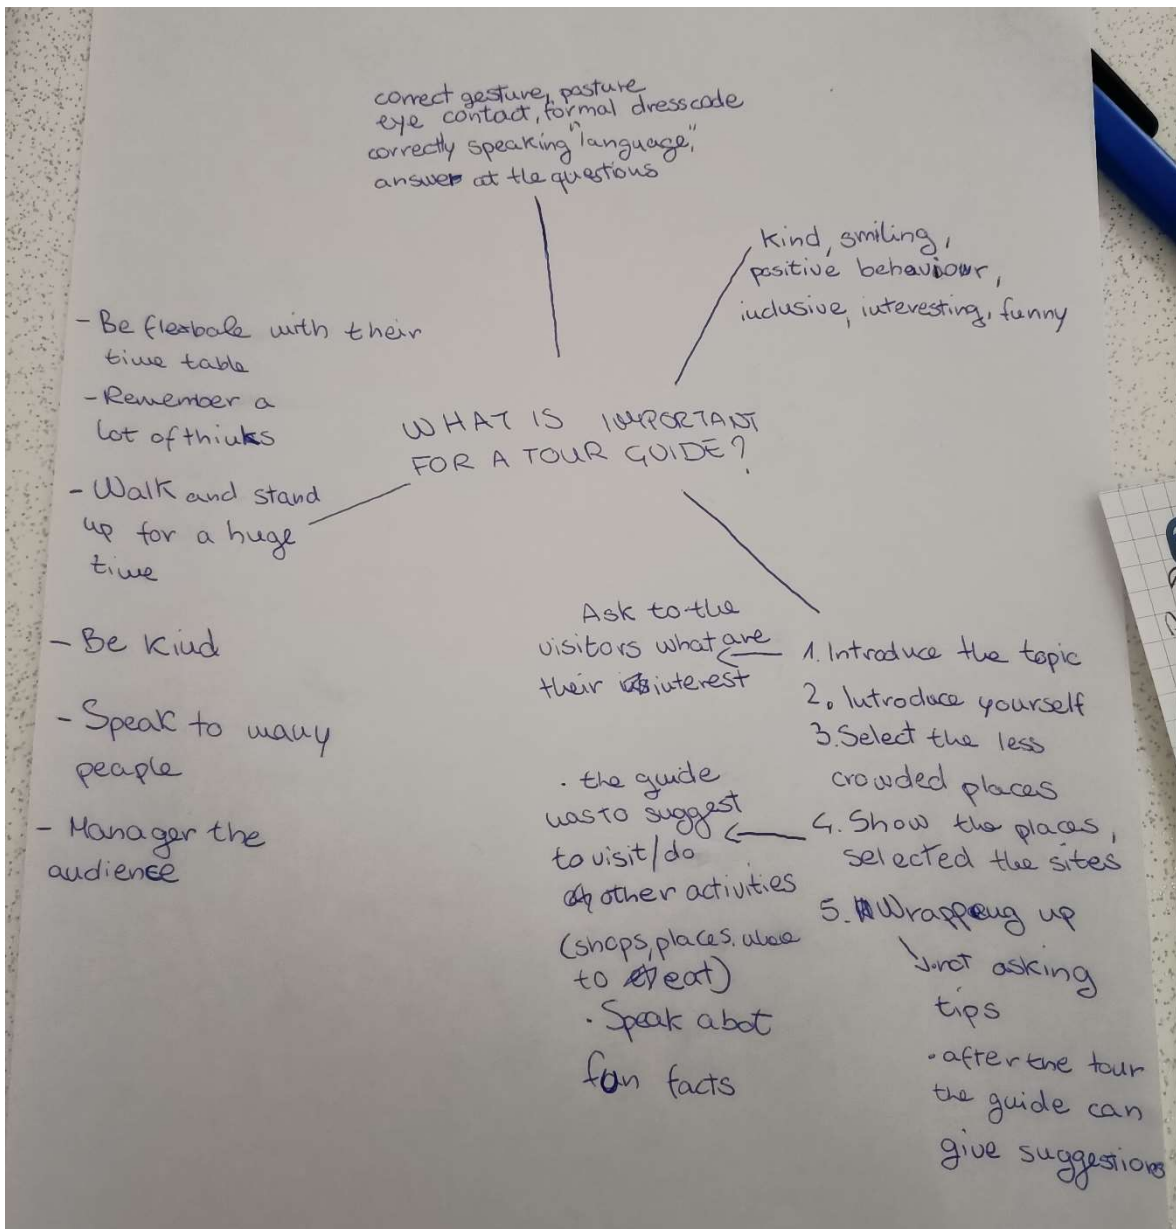 correct gesture, posture
eye contact, formal dresscode
correctly speaking "language",
answer at the questions
kind, smiling,
positive behaviour,
inclusive, interesting, funny
- Be flexbale with their
time table
- Remember a
lot of thinks
- Walk and stand
up for a huge
time
- Be kind
- Speak to many
peaple
- Manager the
audience
WHAT IS IMPORTANT
FOR A TOUR GUIDE?
Ask to the
visitors what are
their interest
1. Introduce the topic
2. Introduce yourself
3. Select the less
crowded places
4. Show the places,
selected the sites
5. Wrappeng up
. not asking
tips
. after the tour
the guide can
give suggestions
. the guide
has to suggest
to visit/do
other activities
(shops, places, where
to eat)
. Speak abot
fun facts